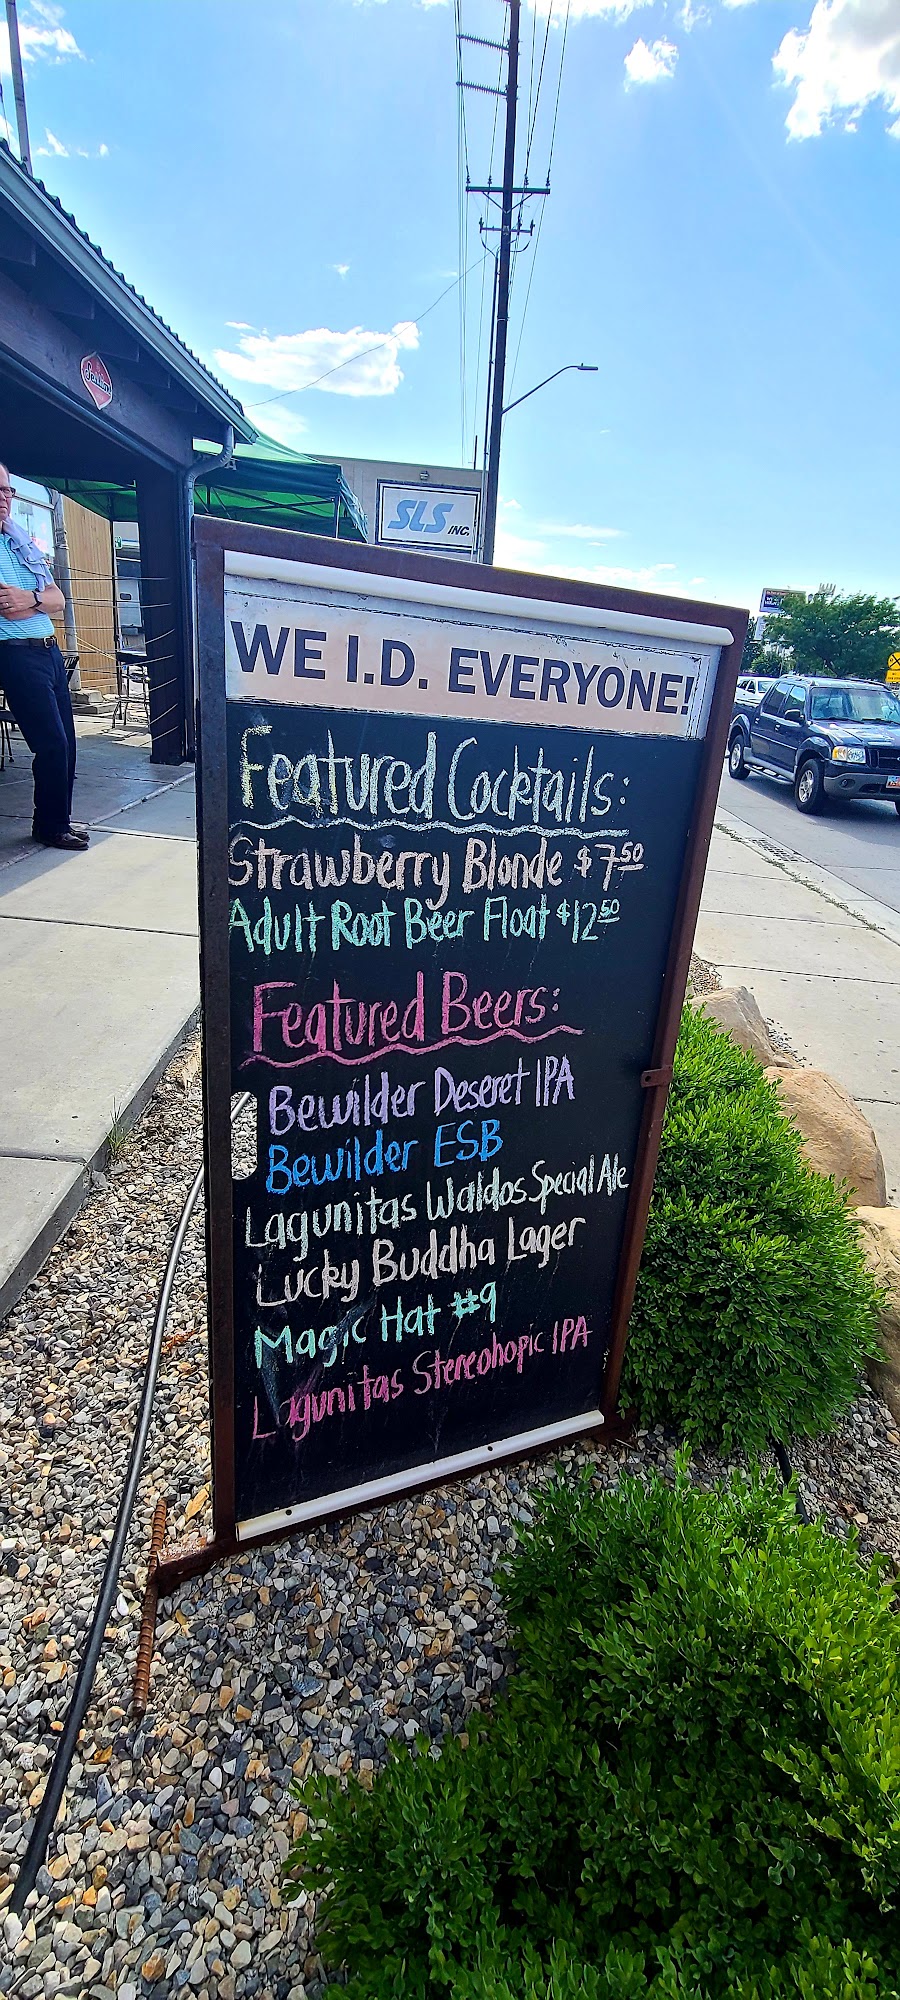 SLS INC.
WE I.D. EVERYONE!
Featured Cocktails:
Strawberry Blonde $7.50
Adult Root Beer Float $12.50
Featured Beers:
Bewilder Deseret IPA
Bewilder ESB
Lagunitas Waldos Special Ale
Lucky Buddha Lager
Magic Hat #9
Lagunitas Stereohopic IPA